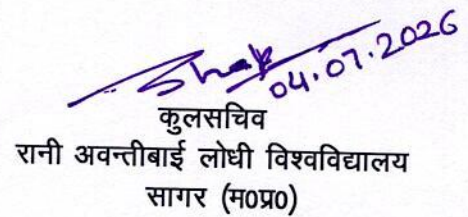 04.07.2026
कुलसचिव
रानी अवन्तीबाई लोधी विश्वविद्यालय
सागर (म0प्र0)